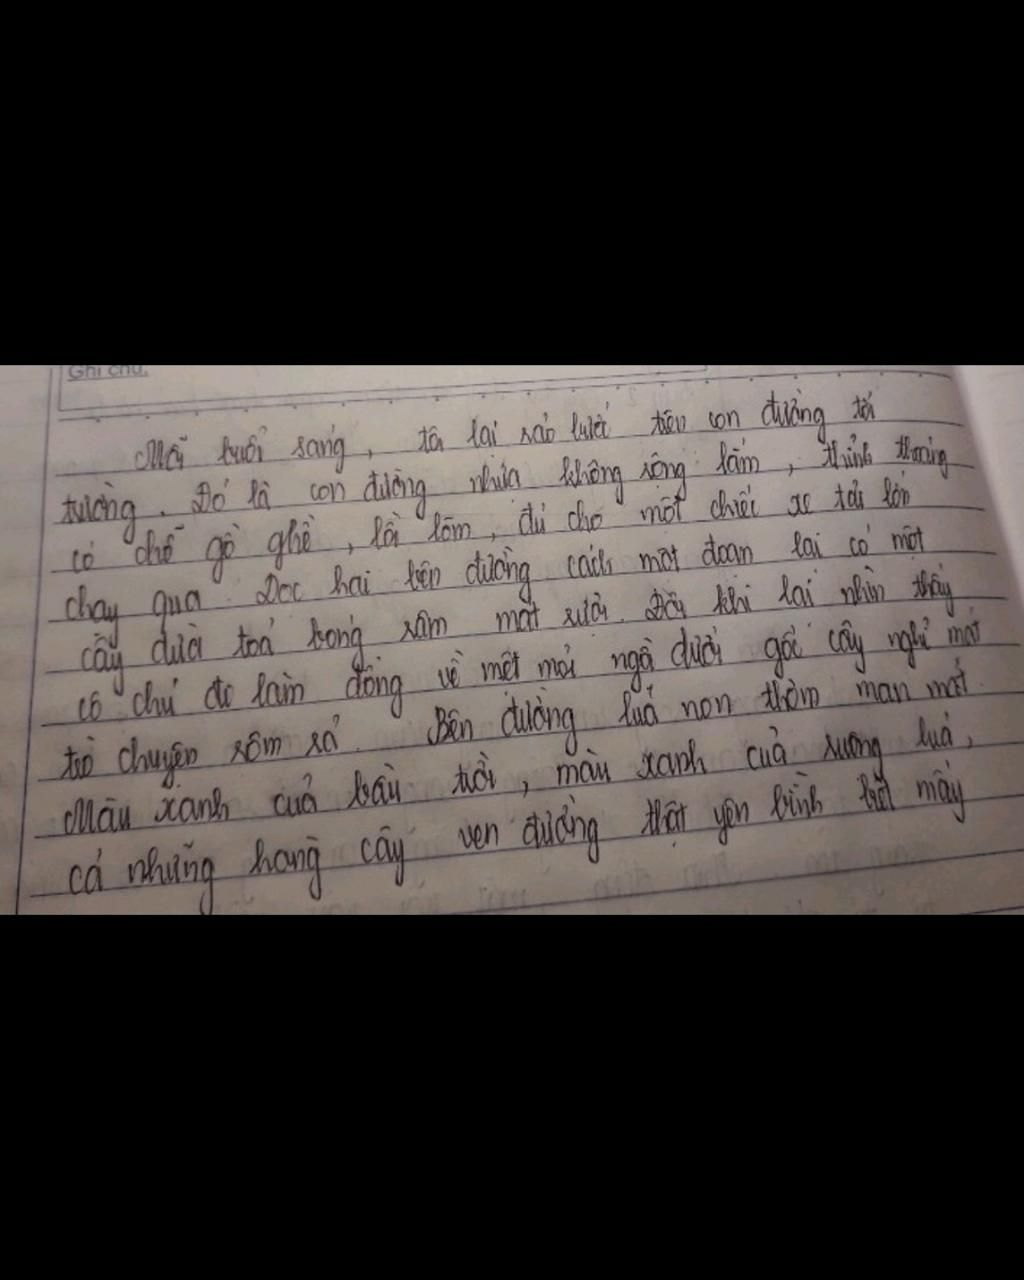 Ghi chú:
Mỗi buổi sáng, tôi lại rảo bước trên con đường tới
trường. Đó là con đường nhựa không rộng lắm, thỉnh thoảng
có chỗ gồ ghề, lồi lõm, đủ cho một chiếc xe tải lớn
chạy qua. Dọc hai bên đường cách một đoạn lại có một
cây dừa toả bóng râm mát rượi. Đôi khi lại nhìn thấy
cô chú đi làm đồng về mệt mỏi ngồi dưới gốc cây nghỉ mát
trò chuyện rôm rả. Bên đường lúa non thơm man mát.
Màu xanh của bầu trời, màu xanh của ruộng lúa,
cả những hàng cây ven đường thật yên bình biết mấy